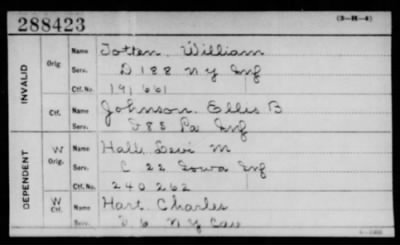 288423
(3-H-4)
INVALID
Orig
Name Totten, William
Serv. D 188 N Y Inf
Ctf. No. 191661
Ctf.
Name Johnson, Ellis B
Serv. I 83 Pa Inf
DEPENDENT
W Orig.
Name Hall, Levi M
Serv. C 22 Iowa Inf
Ctf. No. 240262
W Ctf.
Name Hart Charles
Serv. 6 N Y Cav